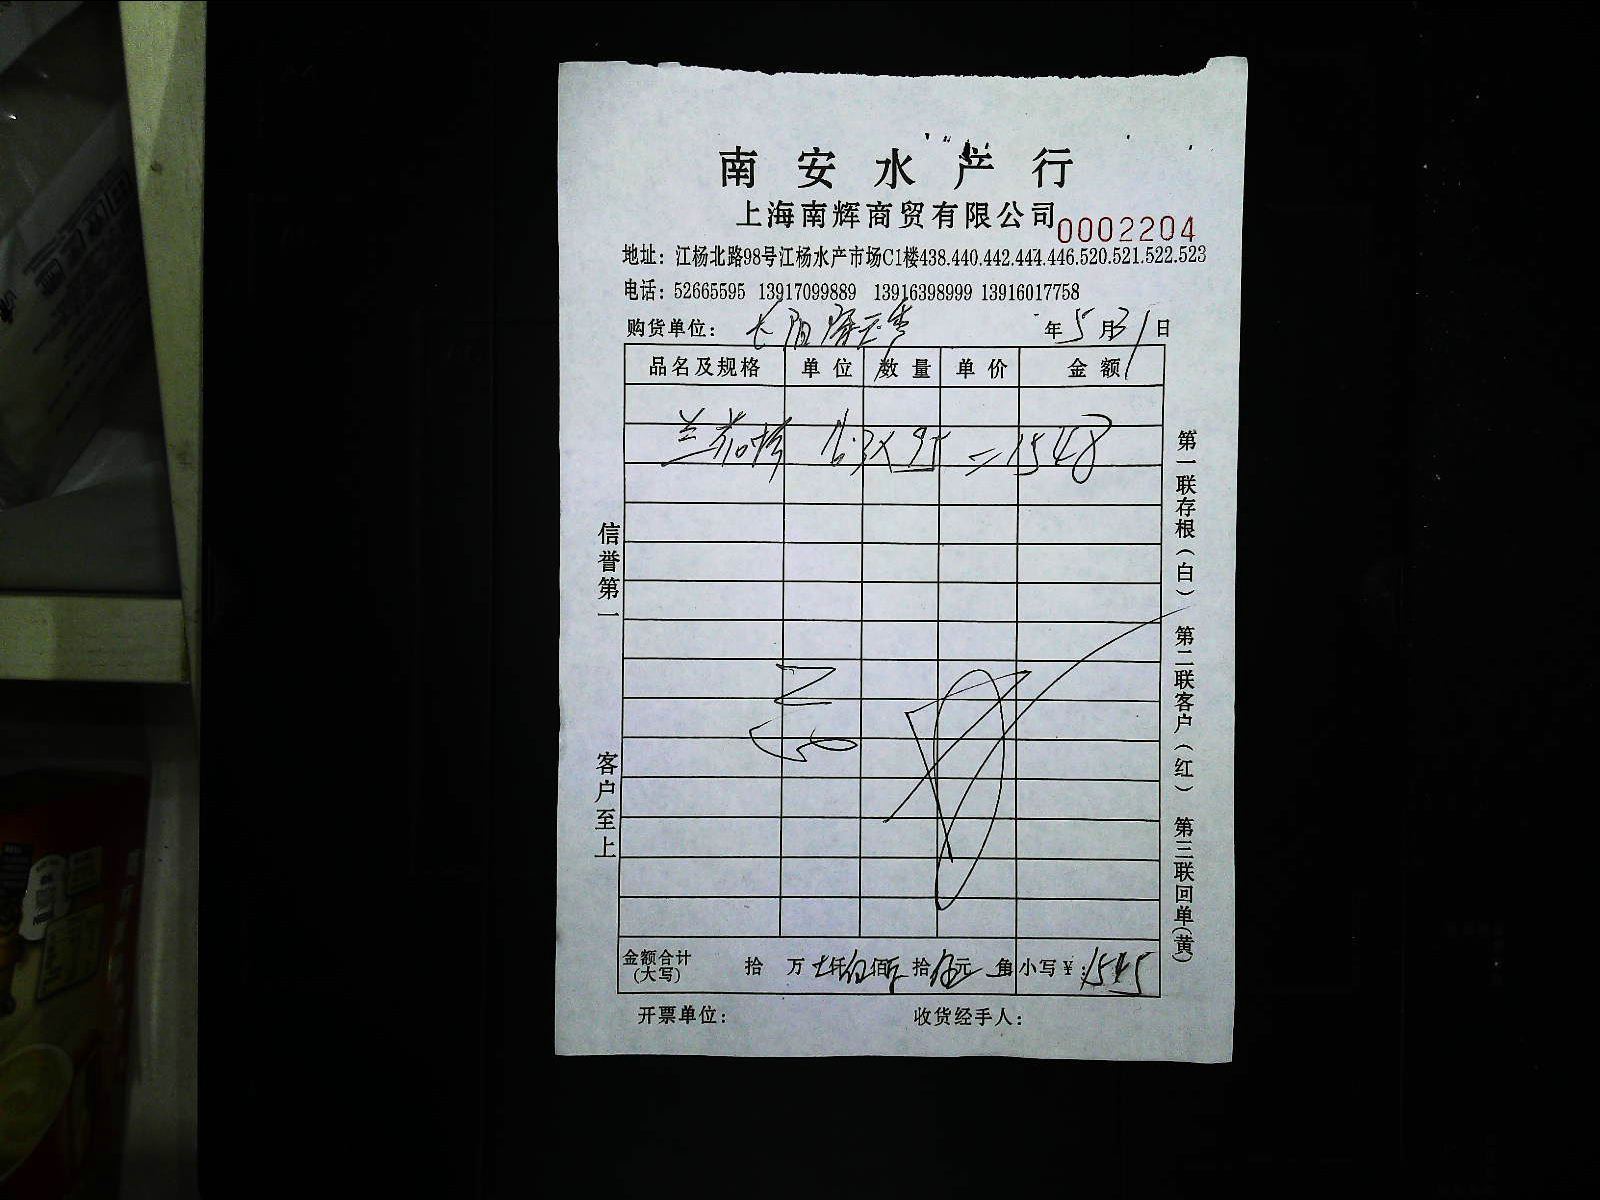 南安水产行
上海南辉商贸有限公司 0002204
地址：江杨北路98号江杨水产市场C1楼438.440.442.444.446.520.521.522.523
电话：52665595 13917099889 13916398999 13916017758
购货单位： 年5月31日
品名及规格 单位 数量 单价 金额
兰花 X 95 = 1548
信誉第一
客户至上
第一联存根（白） 第二联客户（红） 第三联回单（黄）
金额合计（大写） 拾 万 仟 佰 拾 元 角 小写￥：1545
开票单位： 收货经手人：